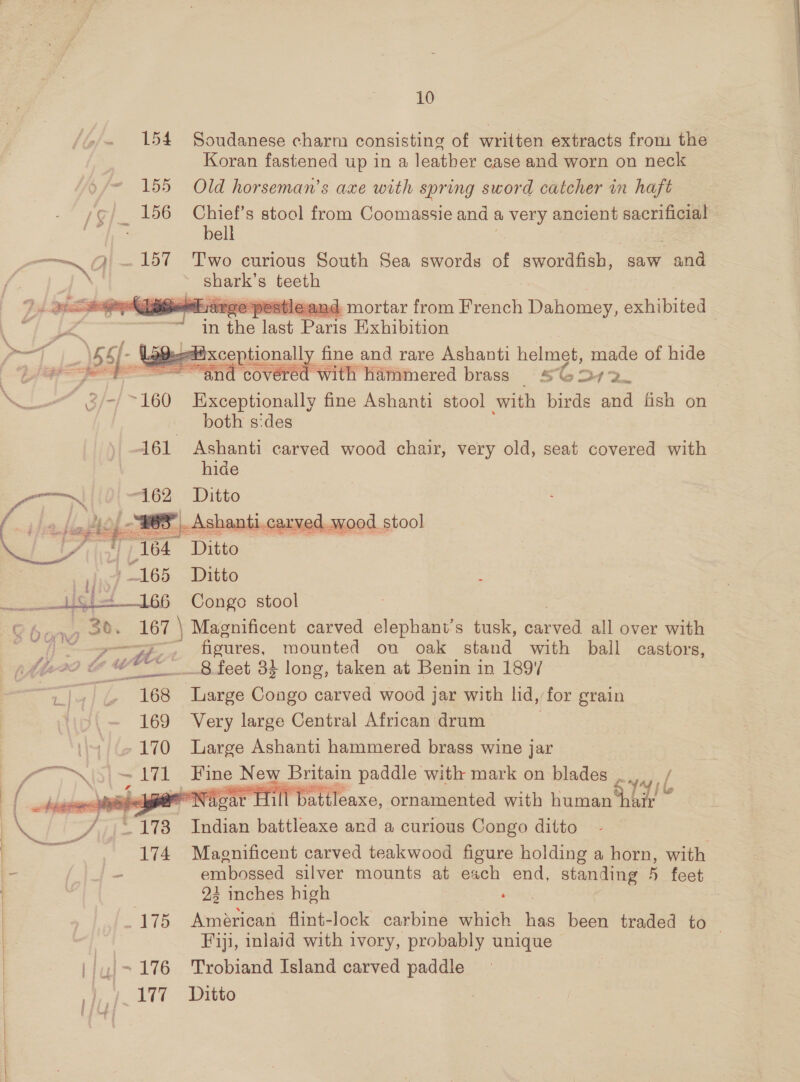 10
154 Soudanese charm consisting of written extracts from the
Koran fastened up in a leather case and worn on neck
155 Old horseman's axe with spring sword catcher in haft
156 Chief's stool from Coomassie and a very ancient sacrificial
bell
157 Two curious South Sea swords of swordfish, saw and
shark's teeth
Large pestle and mortar from French Dahomey, exhibited
in the last Paris Exhibition
159 Exceptionally fine and rare Ashanti helmet, made of hide
and covered with hammered brass
160 Exceptionally fine Ashanti stool with birds and fish on
both sides
161 Ashanti carved wood chair, very old, seat covered with
hide
162 Ditto
163 Ashanti carved wood stool
164 Ditto
165 Ditto
166 Congo stool
30. 167 Magnificent carved elephant's tusk, carved all over with
figures, mounted on oak stand with ball castors,
8 feet 3½ long, taken at Benin in 1897
168 Large Congo carved wood jar with lid, for grain
169 Very large Central African drum
170 Large Ashanti hammered brass wine jar
171 Fine New Britain paddle with mark on blades
Nagar Hill battleaxe, ornamented with human hair
173 Indian battleaxe and a curious Congo ditto
174 Magnificent carved teakwood figure holding a horn, with
embossed silver mounts at each end, standing 5 feet
2½ inches high
175 American flint-lock carbine which has been traded to
Fiji, inlaid with ivory, probably unique
176 Trobiand Island carved paddle
177 Ditto